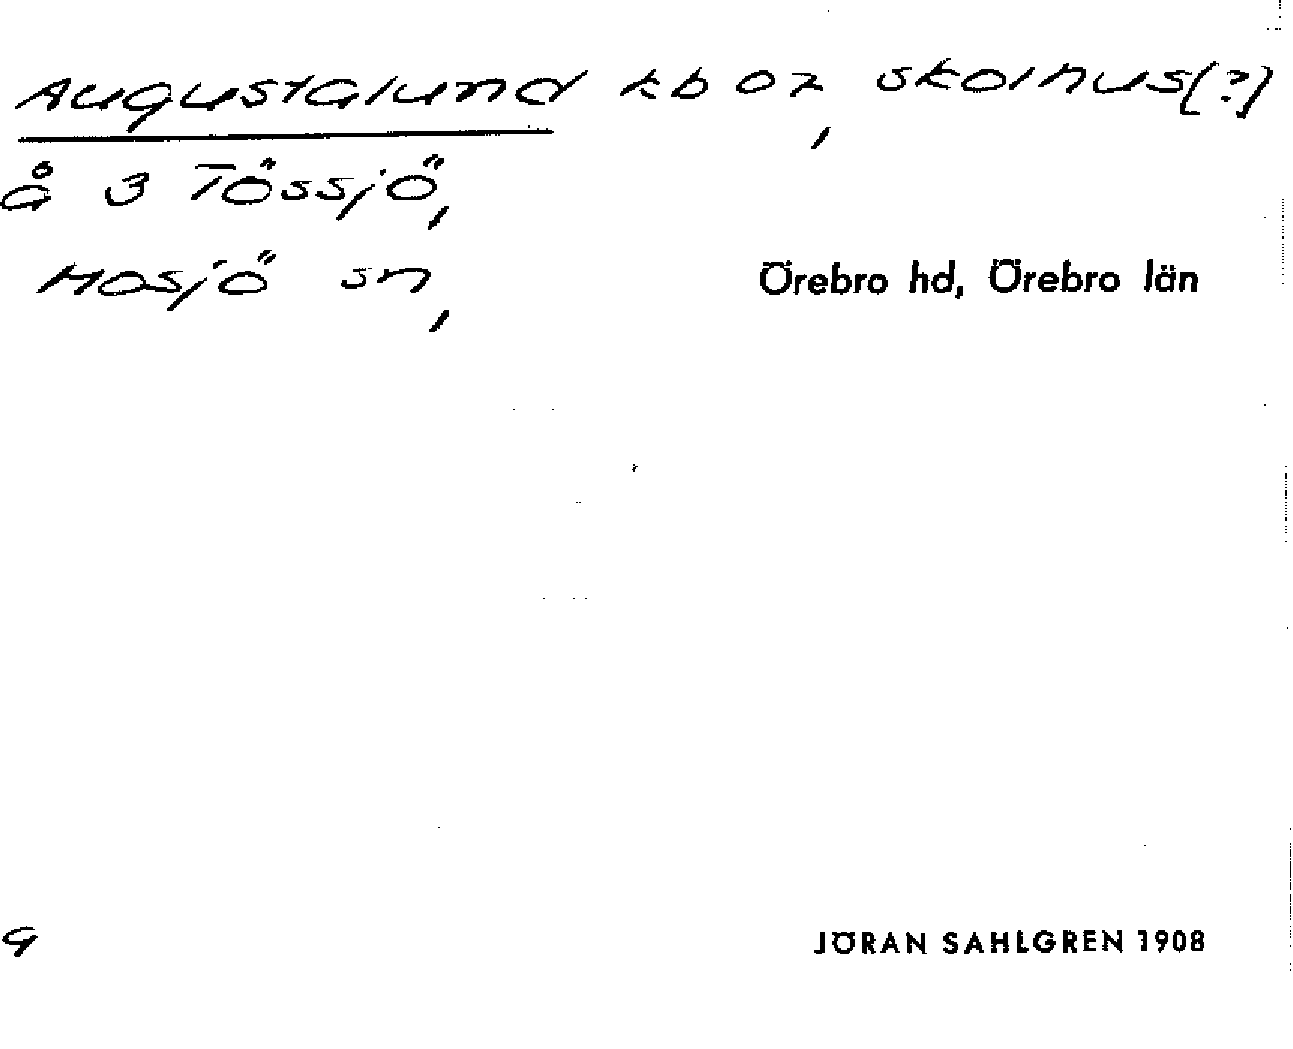 Augustalund kb 07, skolhus(?)
å 3 Tössjö,
Mosjö sn, Örebro hd, Örebro län
JÖRAN SAHLGREN 1908